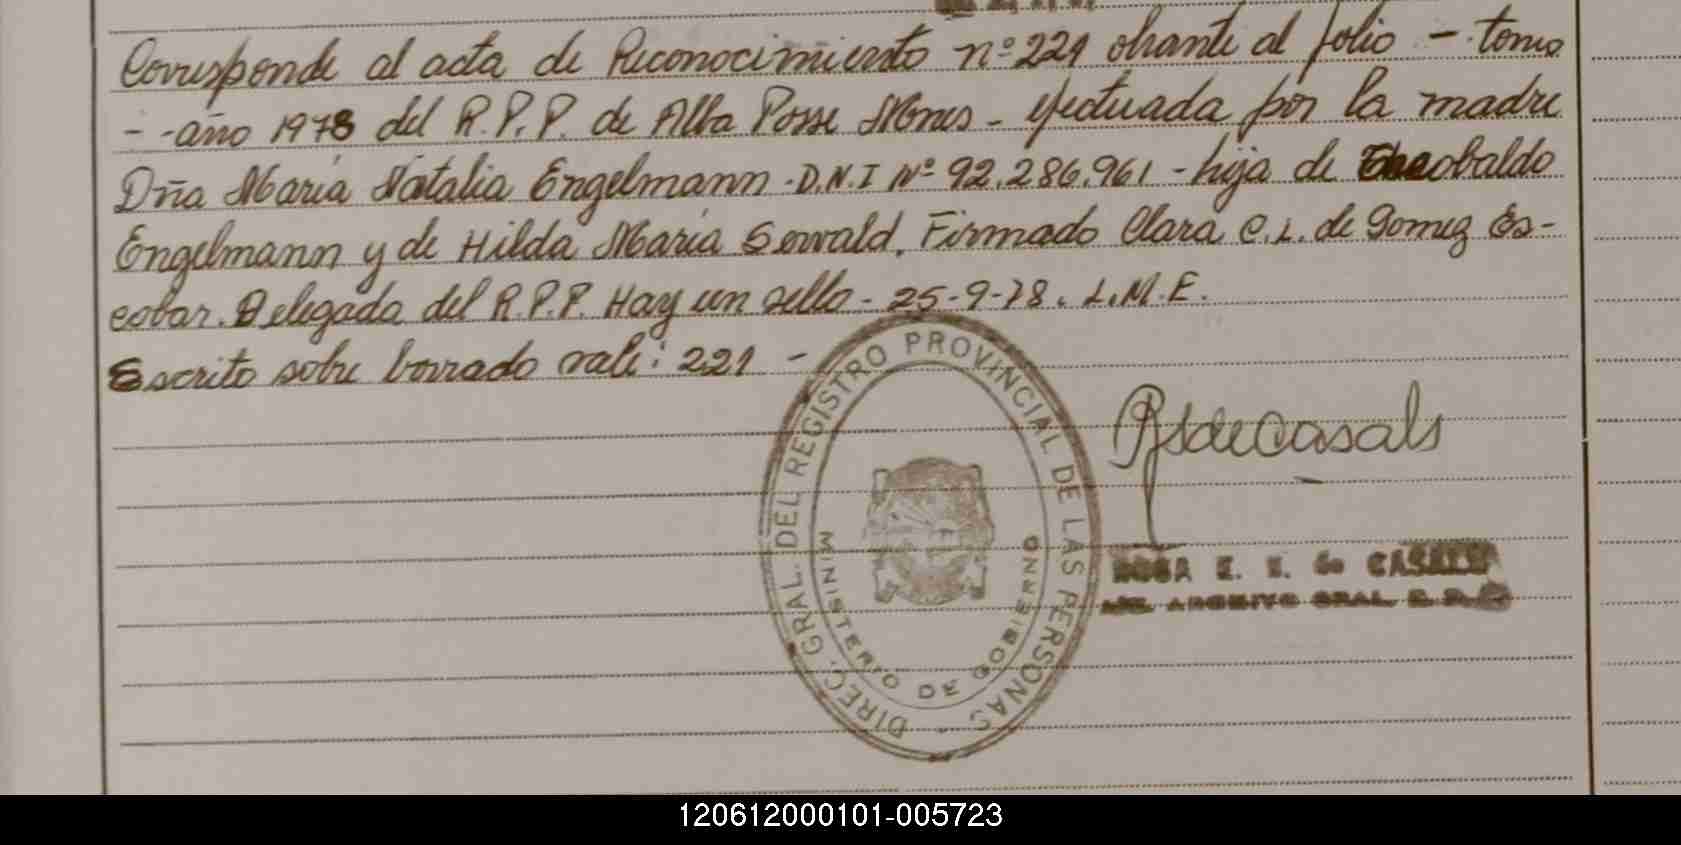 Corresponde al acta de Reconocimiento nº 221 obrante al folio - tomo
- - año 1978 del R.P.P. de Alba Posse Mnes - efectuada por la madre
Dña María Natalia Engelmann - D.N.I Nº 92.286.961 - hija de Theobaldo
Engelmann y de Hilda María Sewald. Firmado Clara C. L. de Gomez Es-
cobar. Delegada del R.P.P. Hay un sello - 25-9-78. L.M.E.
Escrito sobre borrado vale: 221 -
DIREC. GRAL. DEL REGISTRO PROVINCIAL DE LAS PERSONAS
MINISTERIO DE GOBIERNO
de Casals
ROSA E. E. de CASALS
ARCHIVO GRAL.
120612000101-005723